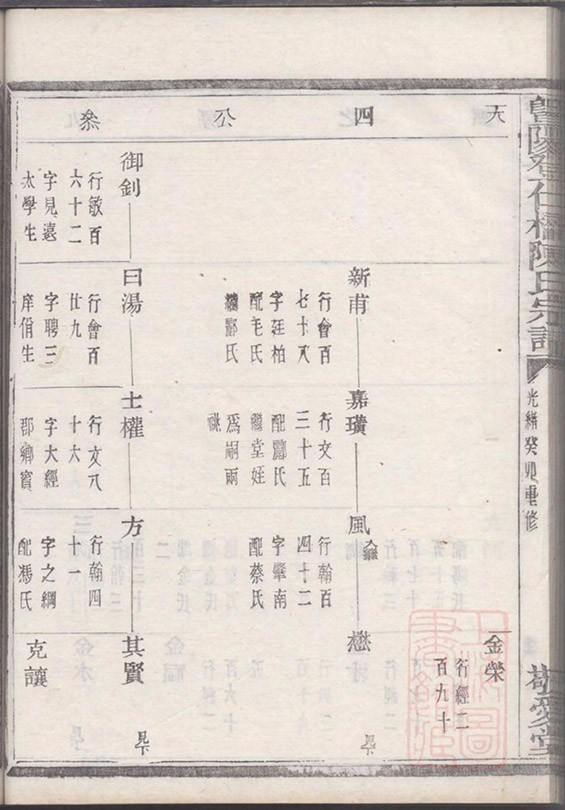 暨陽登仕橋陳氏宗譜
光緒癸卯重修
敬愛堂
大
四
公
叅
金榮
行經二
百九十
新甫
行會百
七十八
字廷柏
配毛氏
繼酈氏
嘉璜
行文百
三十五
配酈氏
繼堂姪
為嗣兩
祧
風
入繼
行翰百
四十二
字肇南
配蔡氏
懋
見下
御釗
行敏百
六十二
字見遠
太學生
日湯
行會百
廿九
字聘三
庠佾生
士權
行文八
十六
字大經
郡鄉賓
方
行翰四
十一
字之綱
配馮氏
其賢
見下
克讓